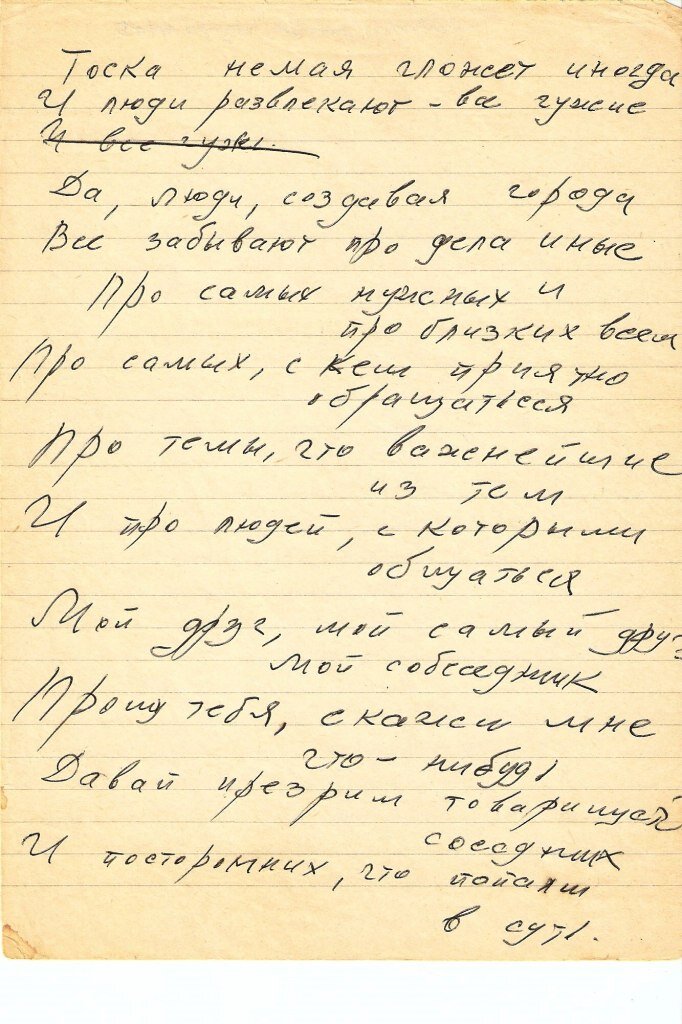 Тоска немая гложет иногда
И люди развлекают – все чужие
И все чужи.
Да, люди, создавая города
Все забывают про дела иные
Про самых нужных и
про близких всем
Про самых, с кем приятно
обращаться
Про темы, что важнейшие
из тем
И про людей, с которыми
общаться
Мой друг, мой самый друг,
мой собеседник
Прошу тебя, скажи мне
что-нибудь
Давай презрим товарищей
соседних
И посторонних, что попали
в суть.